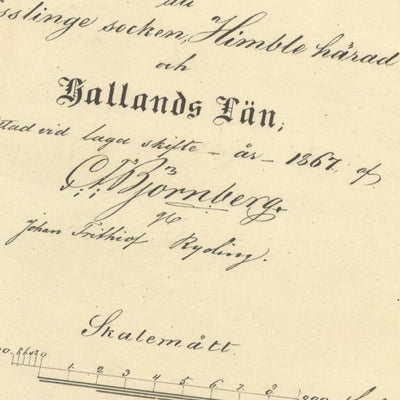 socken, Himble härad
och
Hallands Län;
vid laga skifte - år - 1867. af
Björnberg.
Johan Frithiof Ryding.
Skalemått.
1 2 3 4 5 6 7 8